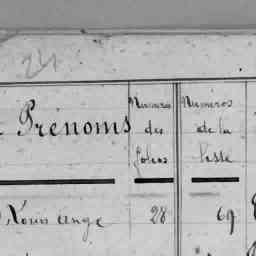 24
Prénoms
Numéros des folios
Numéros de la liste
Louis Ange 28 69